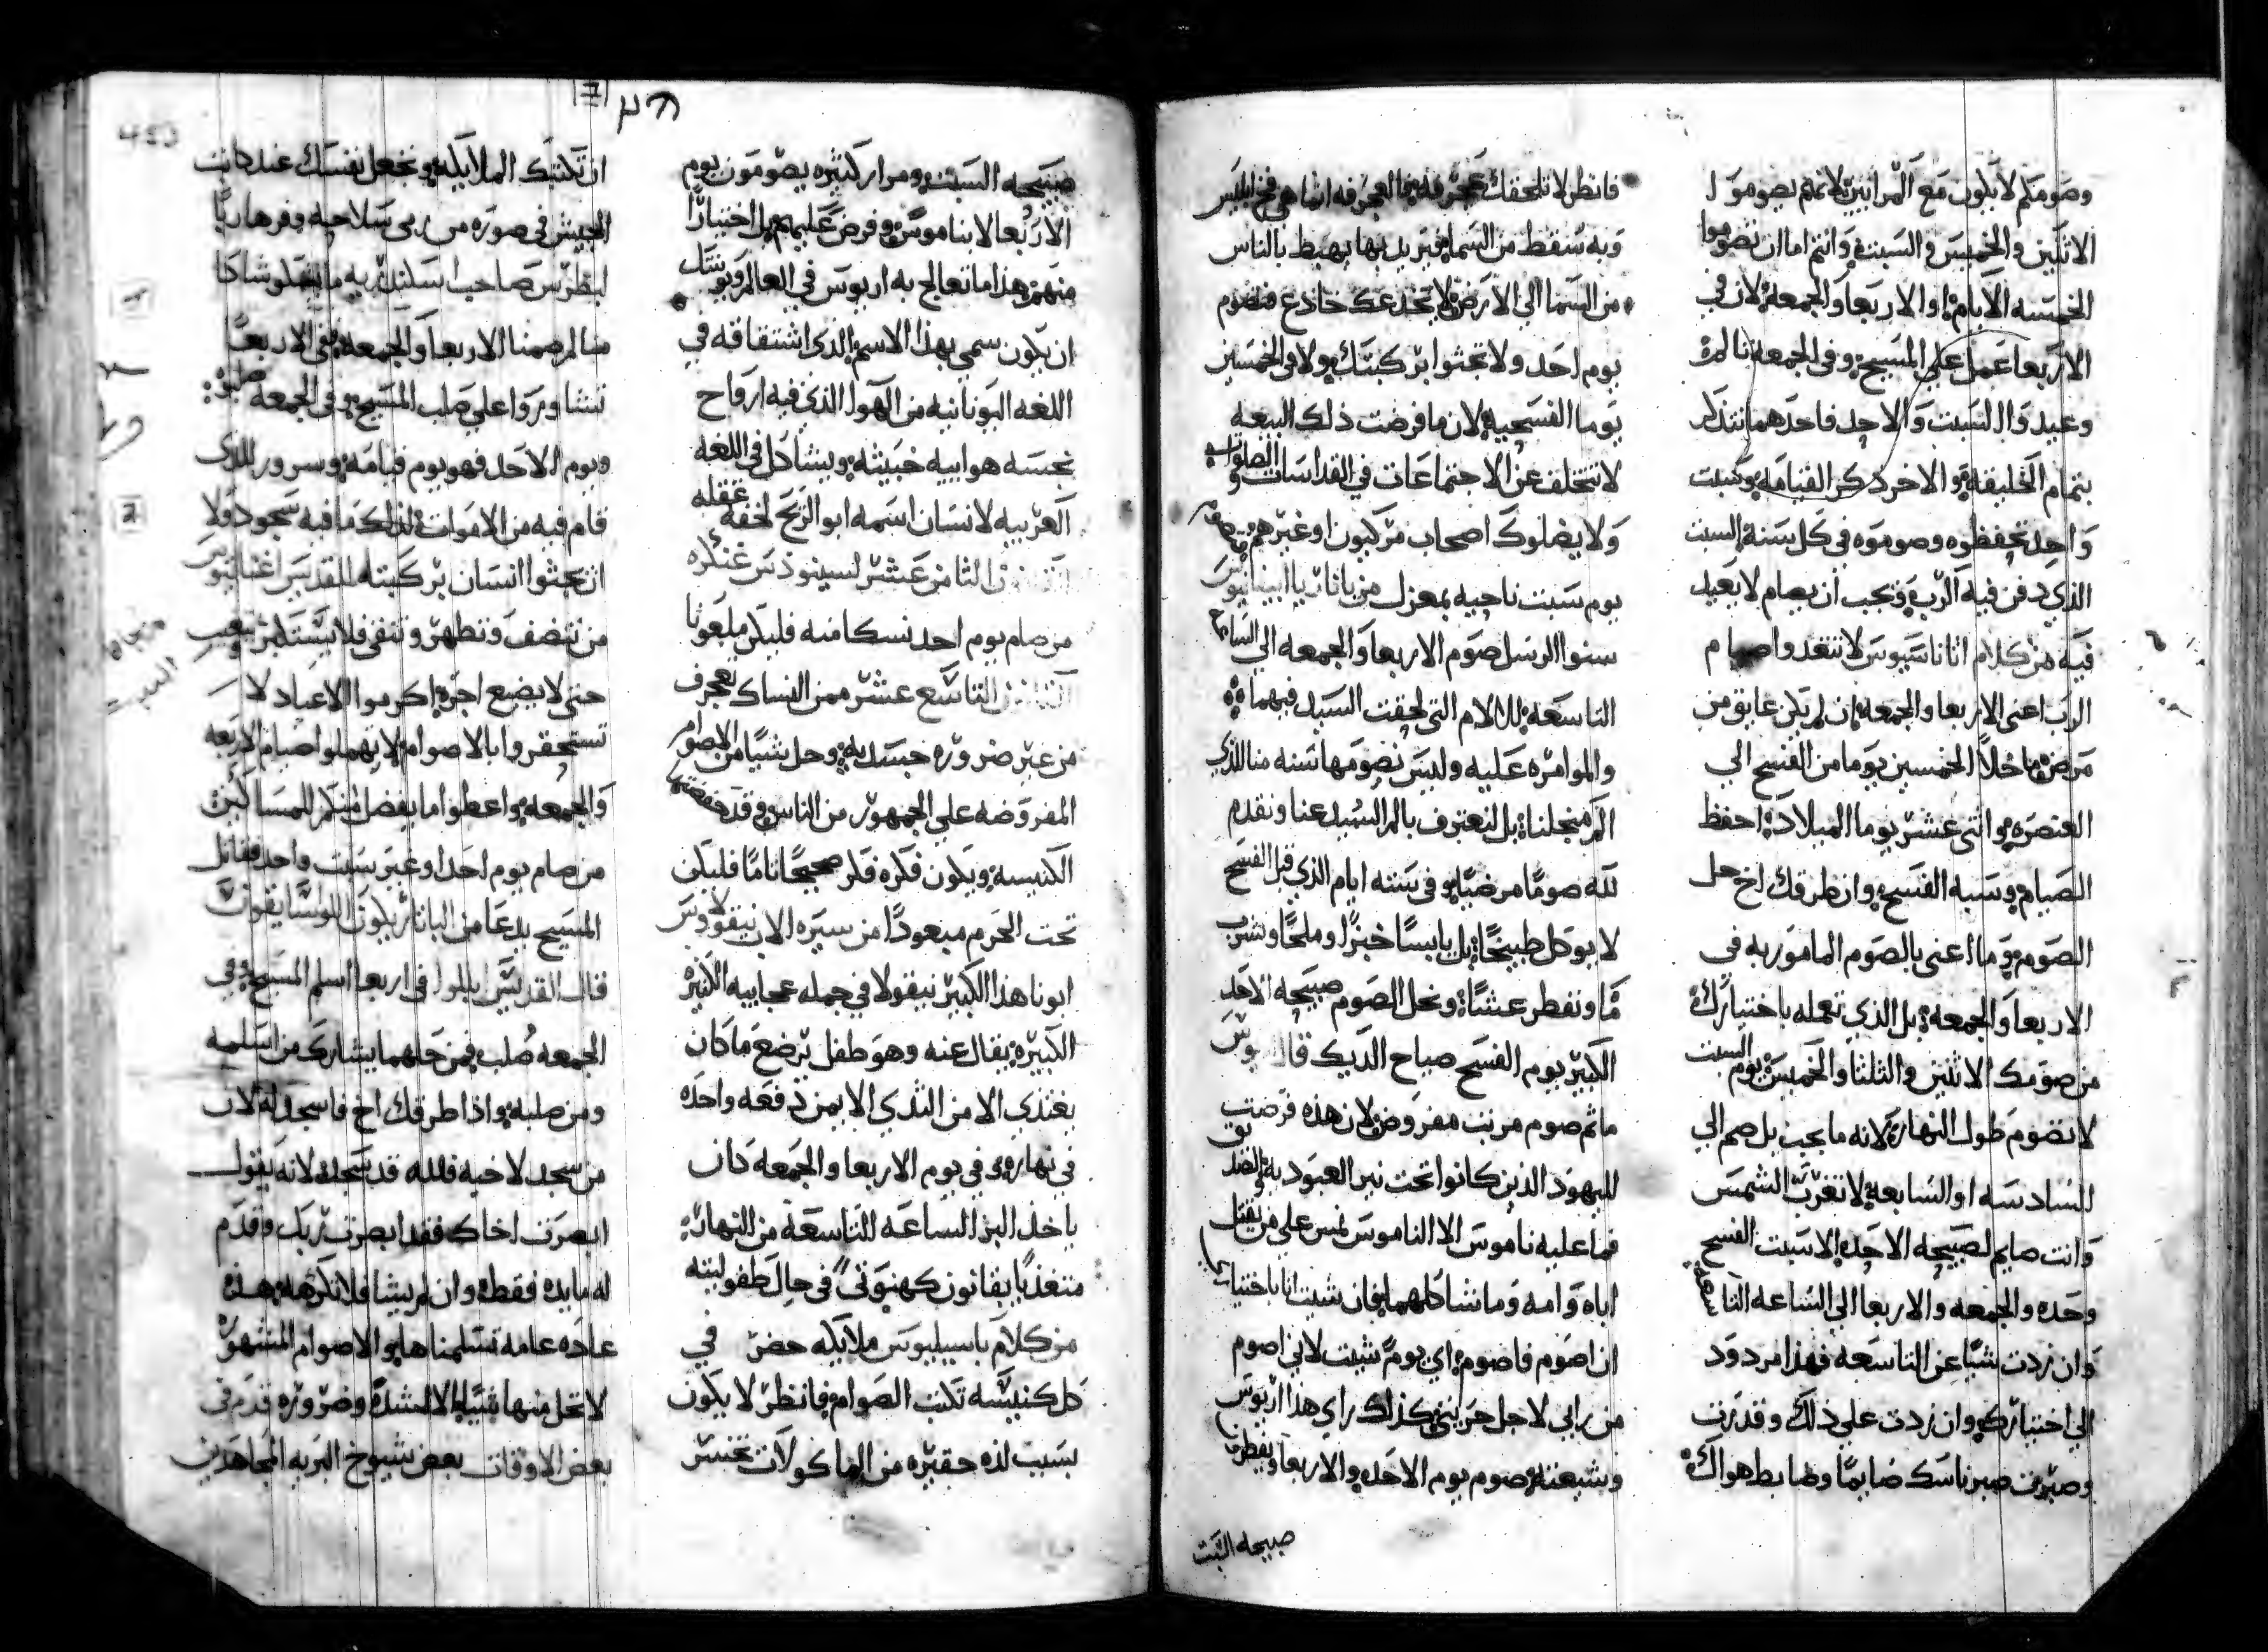 وصومكم لا يكون مع المرايين لانهم يصومون
الاثنين والخميس والسبت وانتم اما ان تصوموا
الخمسه الايام او الاربعا والجمعه لان في
الاربعا عمل على المسيح وفي الجمعه تالم
وعيدوا السبت والاحد فاحدهما تتذكر
بتمام الخليقه والاخر ذكر القيامه وسبت
واحد تحفظوه وصوموه في كل سنة السبت
الذي دفن فيه الرب ويجب ان يصام لا يعيد
فيه من كلام اثاناسيوس لا تتعدوا صيام
الرب اعني الاربعا والجمعه ان لم يكن عايق من
مرض ما خلا الخمسين يوما من الفسح الي
العنصره واثني عشر يوما الميلاد احفظ
الصيام وسبه الفسح وان طرقك اخ حل
الصوم وما اعني بالصوم المامور به في
الاربعا والجمعه بل الذي تعمله باختيارك
من صومك الاثنين والثلثا والخميس يوم السبت
لا تصوم طول النهار لانه ما يجب بل صم الي
السادسه او السابعه لا تغرب الشمس
وانت صايم لصبيحه الاحد الا سبت الفسح
وحده والجمعه والاربعا الي الساعه التاسعه
وان زدت شيا عن التاسعه فهذا مردود
الي اختيارك وان زدت على ذلك وقدرت
وصرت صبر ناسك صايما وضابط هواك
فانظر لا تلحقك عجرفه فالعجرفه انما هي فخ ابليس
وبه سقط من السما فيريد بها يهبط بالناس
من السما الي الارض لا يخدعك خادع فتصوم
يوم احد ولا تجثوا بركبتك ولا في الخمسين
يوما الفسحيه لان ما فرضت ذلك البيعه
لا تتخلف عن الاجتماعات في القداسات والصلوات
ولا يضلوك اصحاب مركيون او غيرهم
يوم سبت ناحيه بمعزل من باناريا ابيفانيوس
سنوا الرسل صوم الاربعا والجمعه الي الساعه
التاسعه للالام التي لحقت السيد فيهما
والموامره عليه وليس نصومها سنه منا للذي
الم من اجلنا بل لنعترف بالم السيد عنا ونقدم
لله صوما مرضيا وفي سته ايام الذي قبل الفسح
لا يوكل طبيخا بل يابسا خبزا وملحا وشرب
ما وتفطر عشا ونحل الصوم صبيحه الاحد
الكبير يوم الفسح صباح الديك قال
ما ثم صوم مرتب مفروض لان هذه فرضت
لليهود الذين كانوا تحت نير العبوديه
فما عليه ناموس الا الناموس نص على من يقتل
اباه وامه وما شاكلهما فان شيت انا باختيار
ان اصوم فاصوم اي يوم شيت لاني اصوم
من رايي لاجل حريتي كذلك راي هذا اريوس
وشيعته صوم يوم الاحد والاربعا ويفطروا
صبيحه السبت
صبيحه السبت ومرار كثيره يصومون يوم
الاربعا لا بناموس وفرض عليهم بل اختيارا
منهم هذا ما تعالج به اريوس في العالم
ان يكون سمي بهذا الاسم الذي اشتقاقه في
اللغه اليونانيه من الهوا الذي فيه ارواح
نجسه هواييه خبيثه ويشاكل في اللغه
العربيه لانسان اسمه ابو الريح لخفة عقله
القانون الثامن عشر لسينوذس غنكره
من صام يوم احد نسكا منه فليكن ملعونا
القانون التاسع عشر ممن النساك يعجرف
من غير ضروره جسديه وحل شيا من الاصوام
المفروضه على الجمهور من الناس وقد حفظتها
الكنيسه ويكون فكره فكر صحيحا تاما فليكن
تحت الحرم مبعودا من سيره الاب نيقولاوس
ابونا هذا الكبير نيقولا في جمله عجايبه الكثيره
الكبيره يقال عنه وهو طفل يرضع ما كان
يغتذي الا من الثدي الايمن دفعه واحده
في نهاره وفي يوم الاربعا والجمعه كان
ياخذ البز الساعه التاسعه من النهار
متغذيا بقانون كهنوتي في حال طفوليته
من كلام باسيليوس ملايكه حضر في
كل كنيسه تكتب الصوام فانظر لا يكون
بسبب لذه حقيره من الماكولات تخسر
ان تكتبك الملايكه وتجعل نفسك عند كاتب
الجيش في صوره من رمي سلاحه وفر هاربا
لبطرس صاحب اسكندريه ما يتقدر شاكا
منا لم صمنا الاربعا والجمعه ففي الاربعا
تشاوروا على صلب المسيح وفي الجمعه صلبوه
ويوم الاحد فهو يوم قيامه وسرور للذي
قام فيه من الاموات لذلك ما فيه سجود ولا
ان يجثوا انسان بركبته للقديس اغناتيوس
من تنضف وتطهر وتنقى فلا يستكبر ويعجب
حتى لا يضيع اجره اكرموا الاعياد لا
تستحقروا بالاصوام لا تهملوا صيام الاربعه
والجمعه واعطوا ما يفضل منكم للمساكين
من صام يوم احد او غير سبت واحد فقاتل
المسيح يدعا من البانار
قال القديس ايللوا في اربعا اسلم المسيح وفي
الجمعه صلب فمن حلهما يشارك من اسلمه
ومن صلبه واذا طرقك اخ فاسجد له لان
من سجد لاخيه فلله قد سجد لانه يقول
ابصرت اخاك فقد ابصرت ربك وقدم
له مايده فقط وان لم يشا فلا تكرهه هذه
عاده عامه تسلمناها والاصوام المشهوره
لا تحل منها شيا الا لشده وضروره قدم في
بعض الاوقات بعض شيوخ البريه المجاهدين